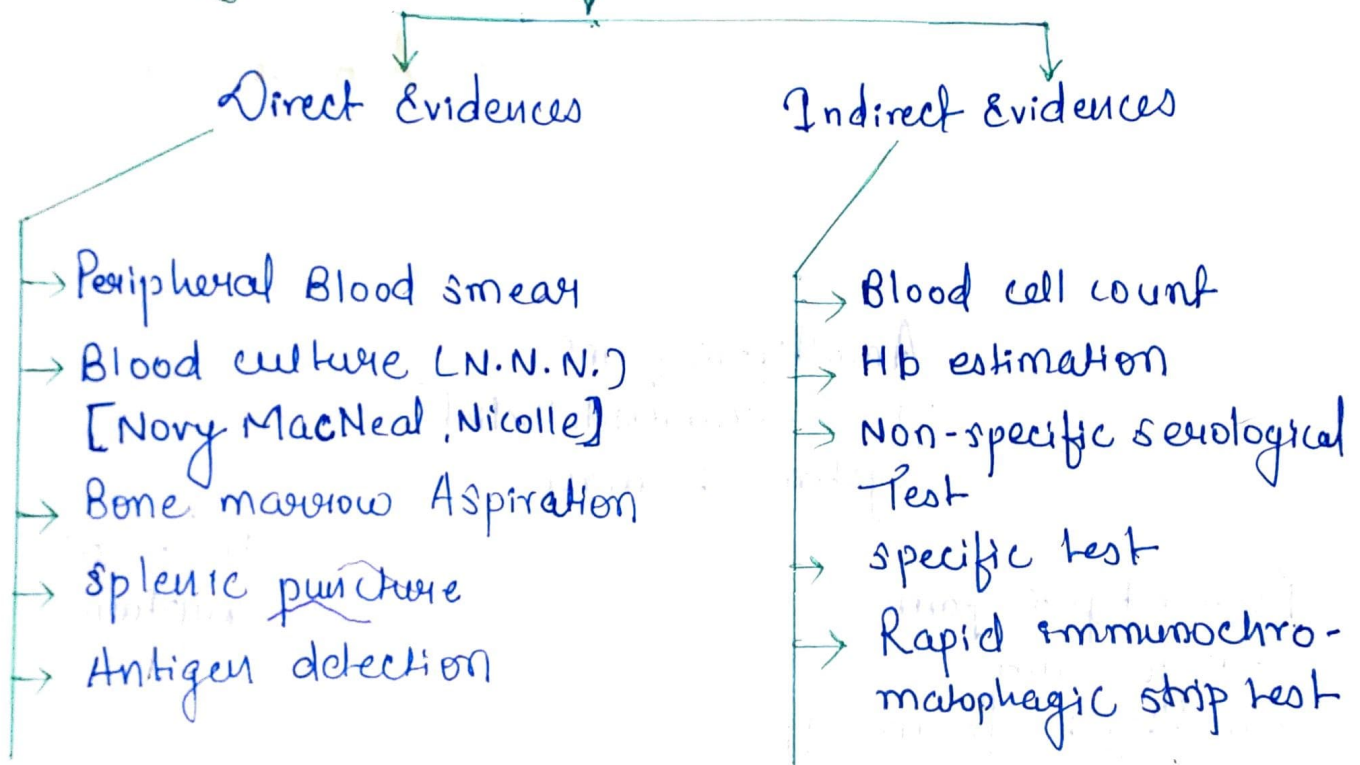 Direct Evidences
Indirect Evidences
Peripheral Blood smear
Blood culture (N.N.N.)
[Novy MacNeal, Nicolle]
Bone marrow Aspiration
Splenic puncture
Antigen detection
Blood cell count
Hb estimation
Non-specific serological
Test
specific test
Rapid immunochro-
matophagic strip test